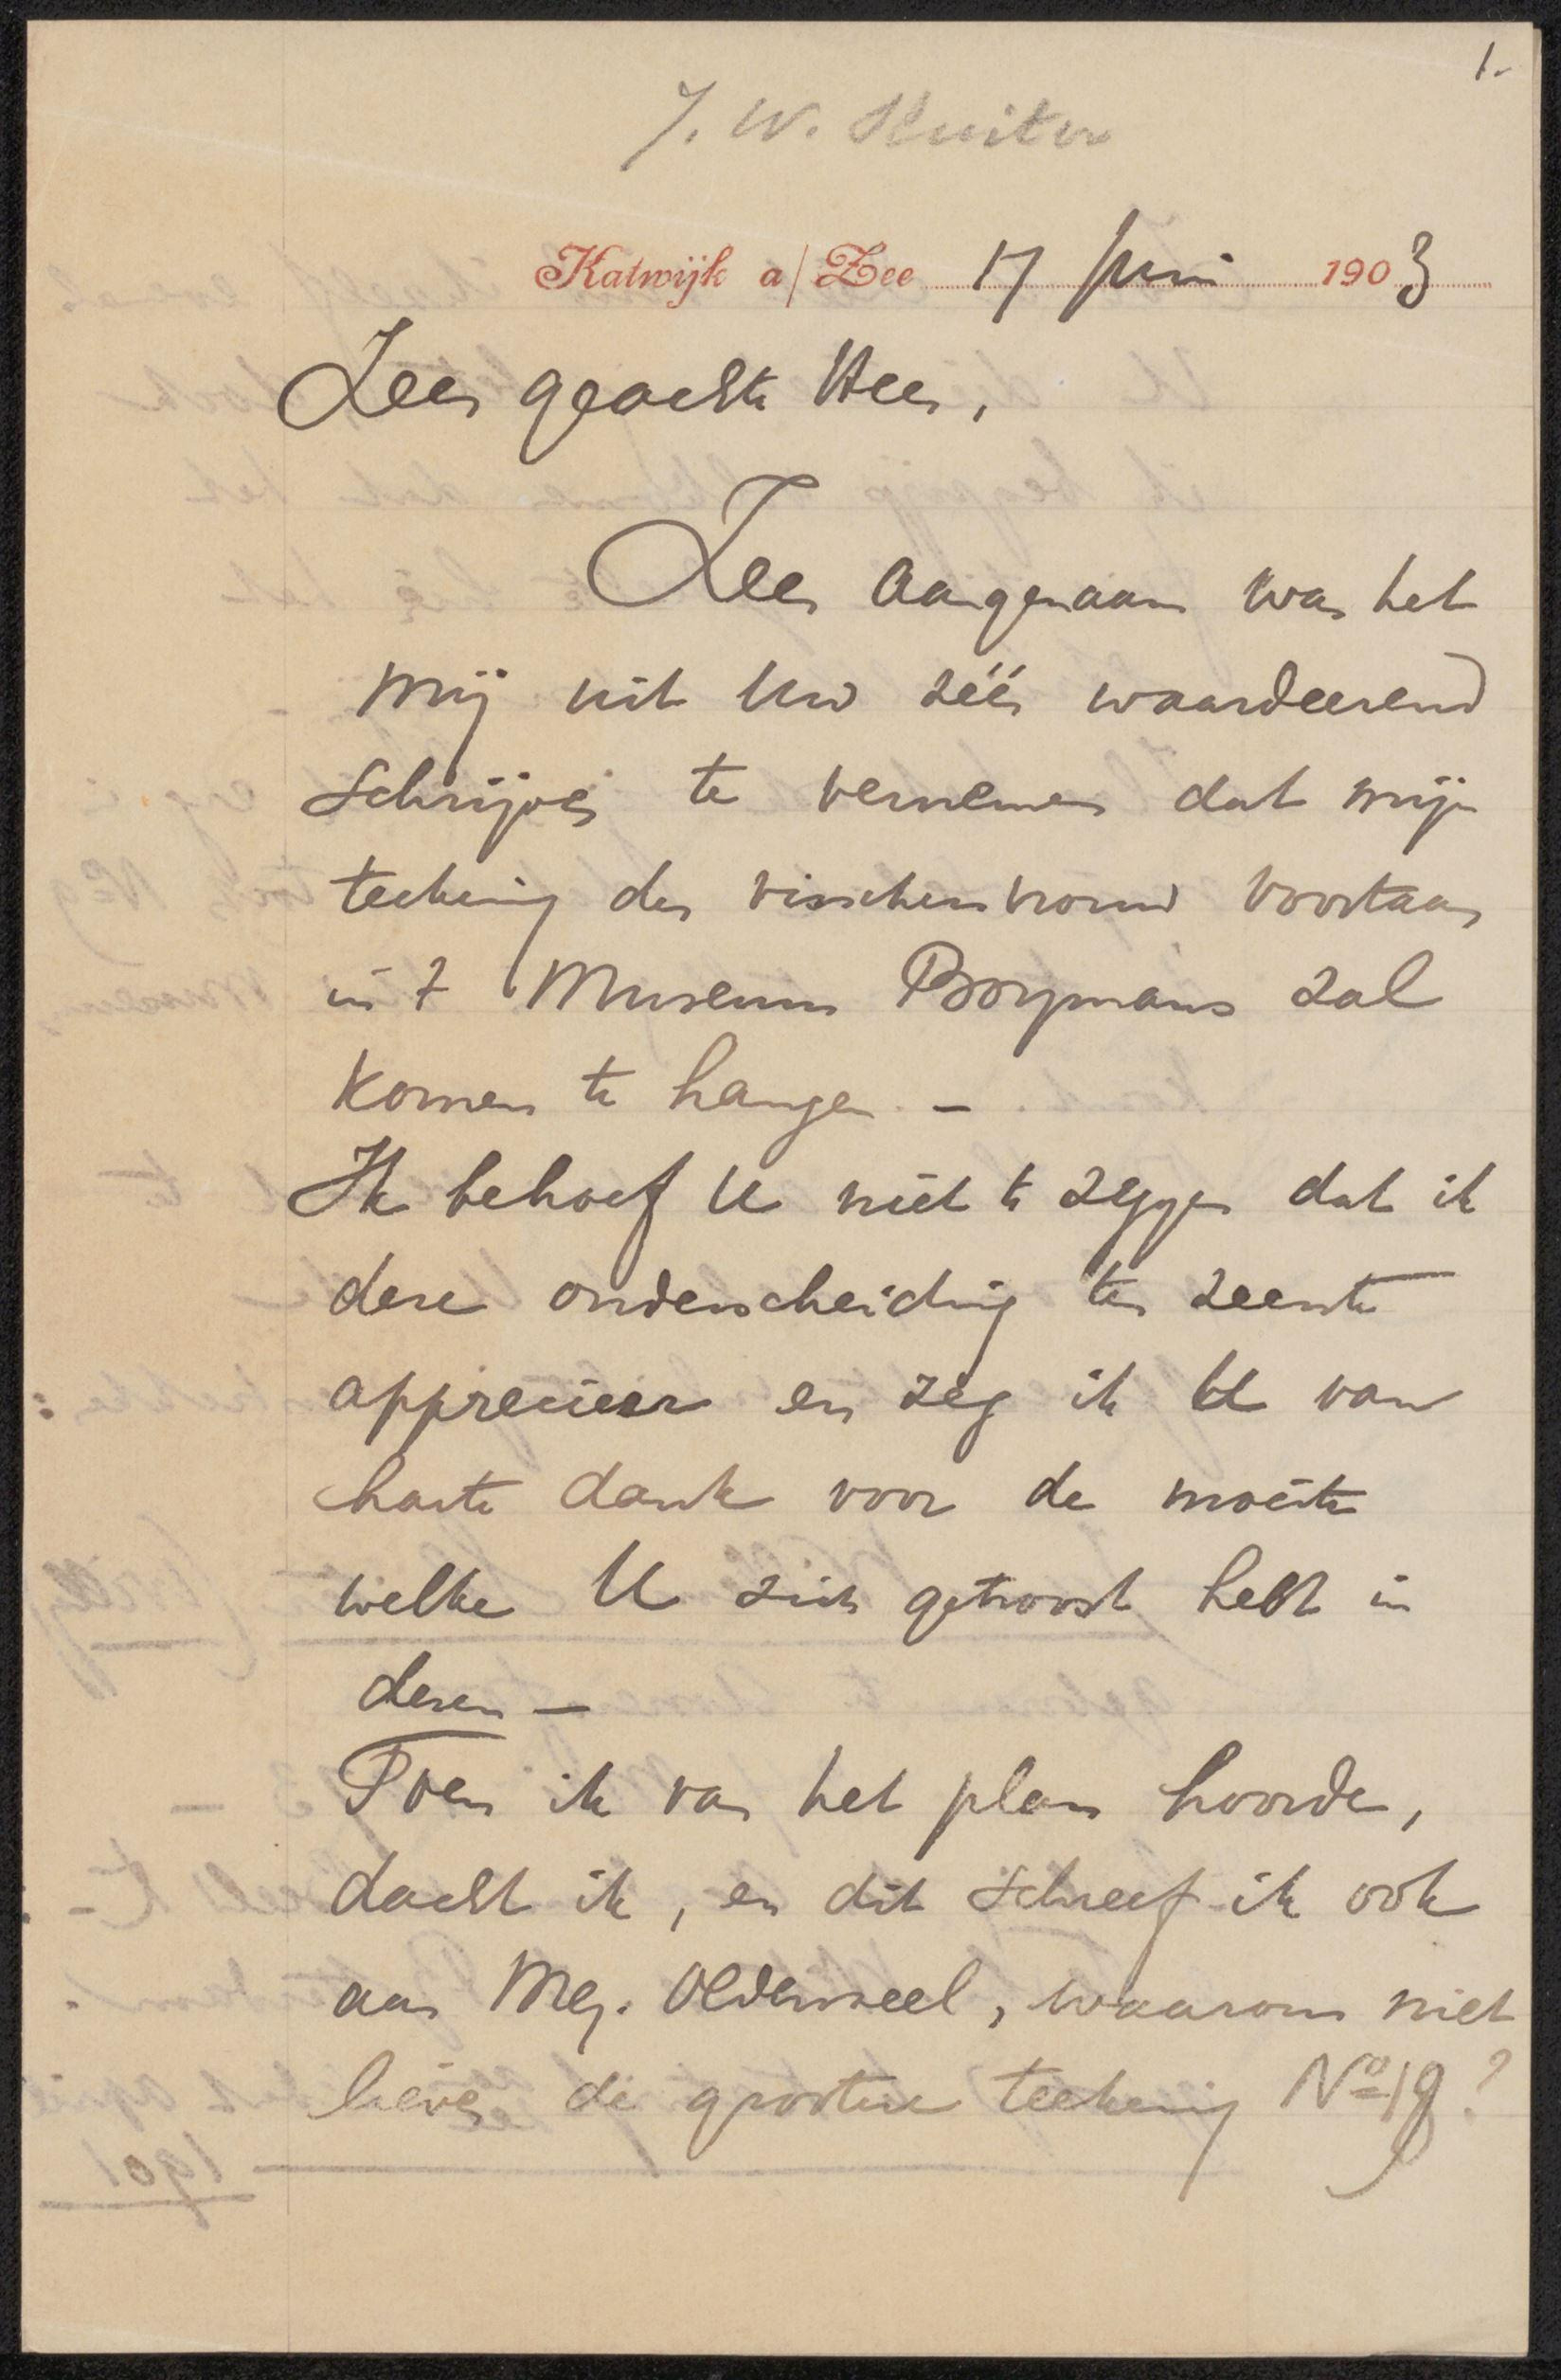 1.
J. W. Sluiter
Katwijk a/Zee 17 Juni 1903
Zeer geachte Heer,
Zeer aangenaam was het
mij uit Uw zéér waardeerend
schrijven te vernemen dat mijn
teekening der visschersvrouw voortaan
in 't Museum Boymans zal
komen te hangen. –
Ik behoef U niet te zeggen dat ik
deze onderscheiding ten zeerste
apprecieer en zeg ik U van
harte dank voor de moeite
welke U zich getroost hebt in
dezen –
Toen ik van het plan hoorde,
dacht ik, en dit schreef ik ook
aan Mej. Oldenzeel, waarom niet
liever de grootere teekening No 19?